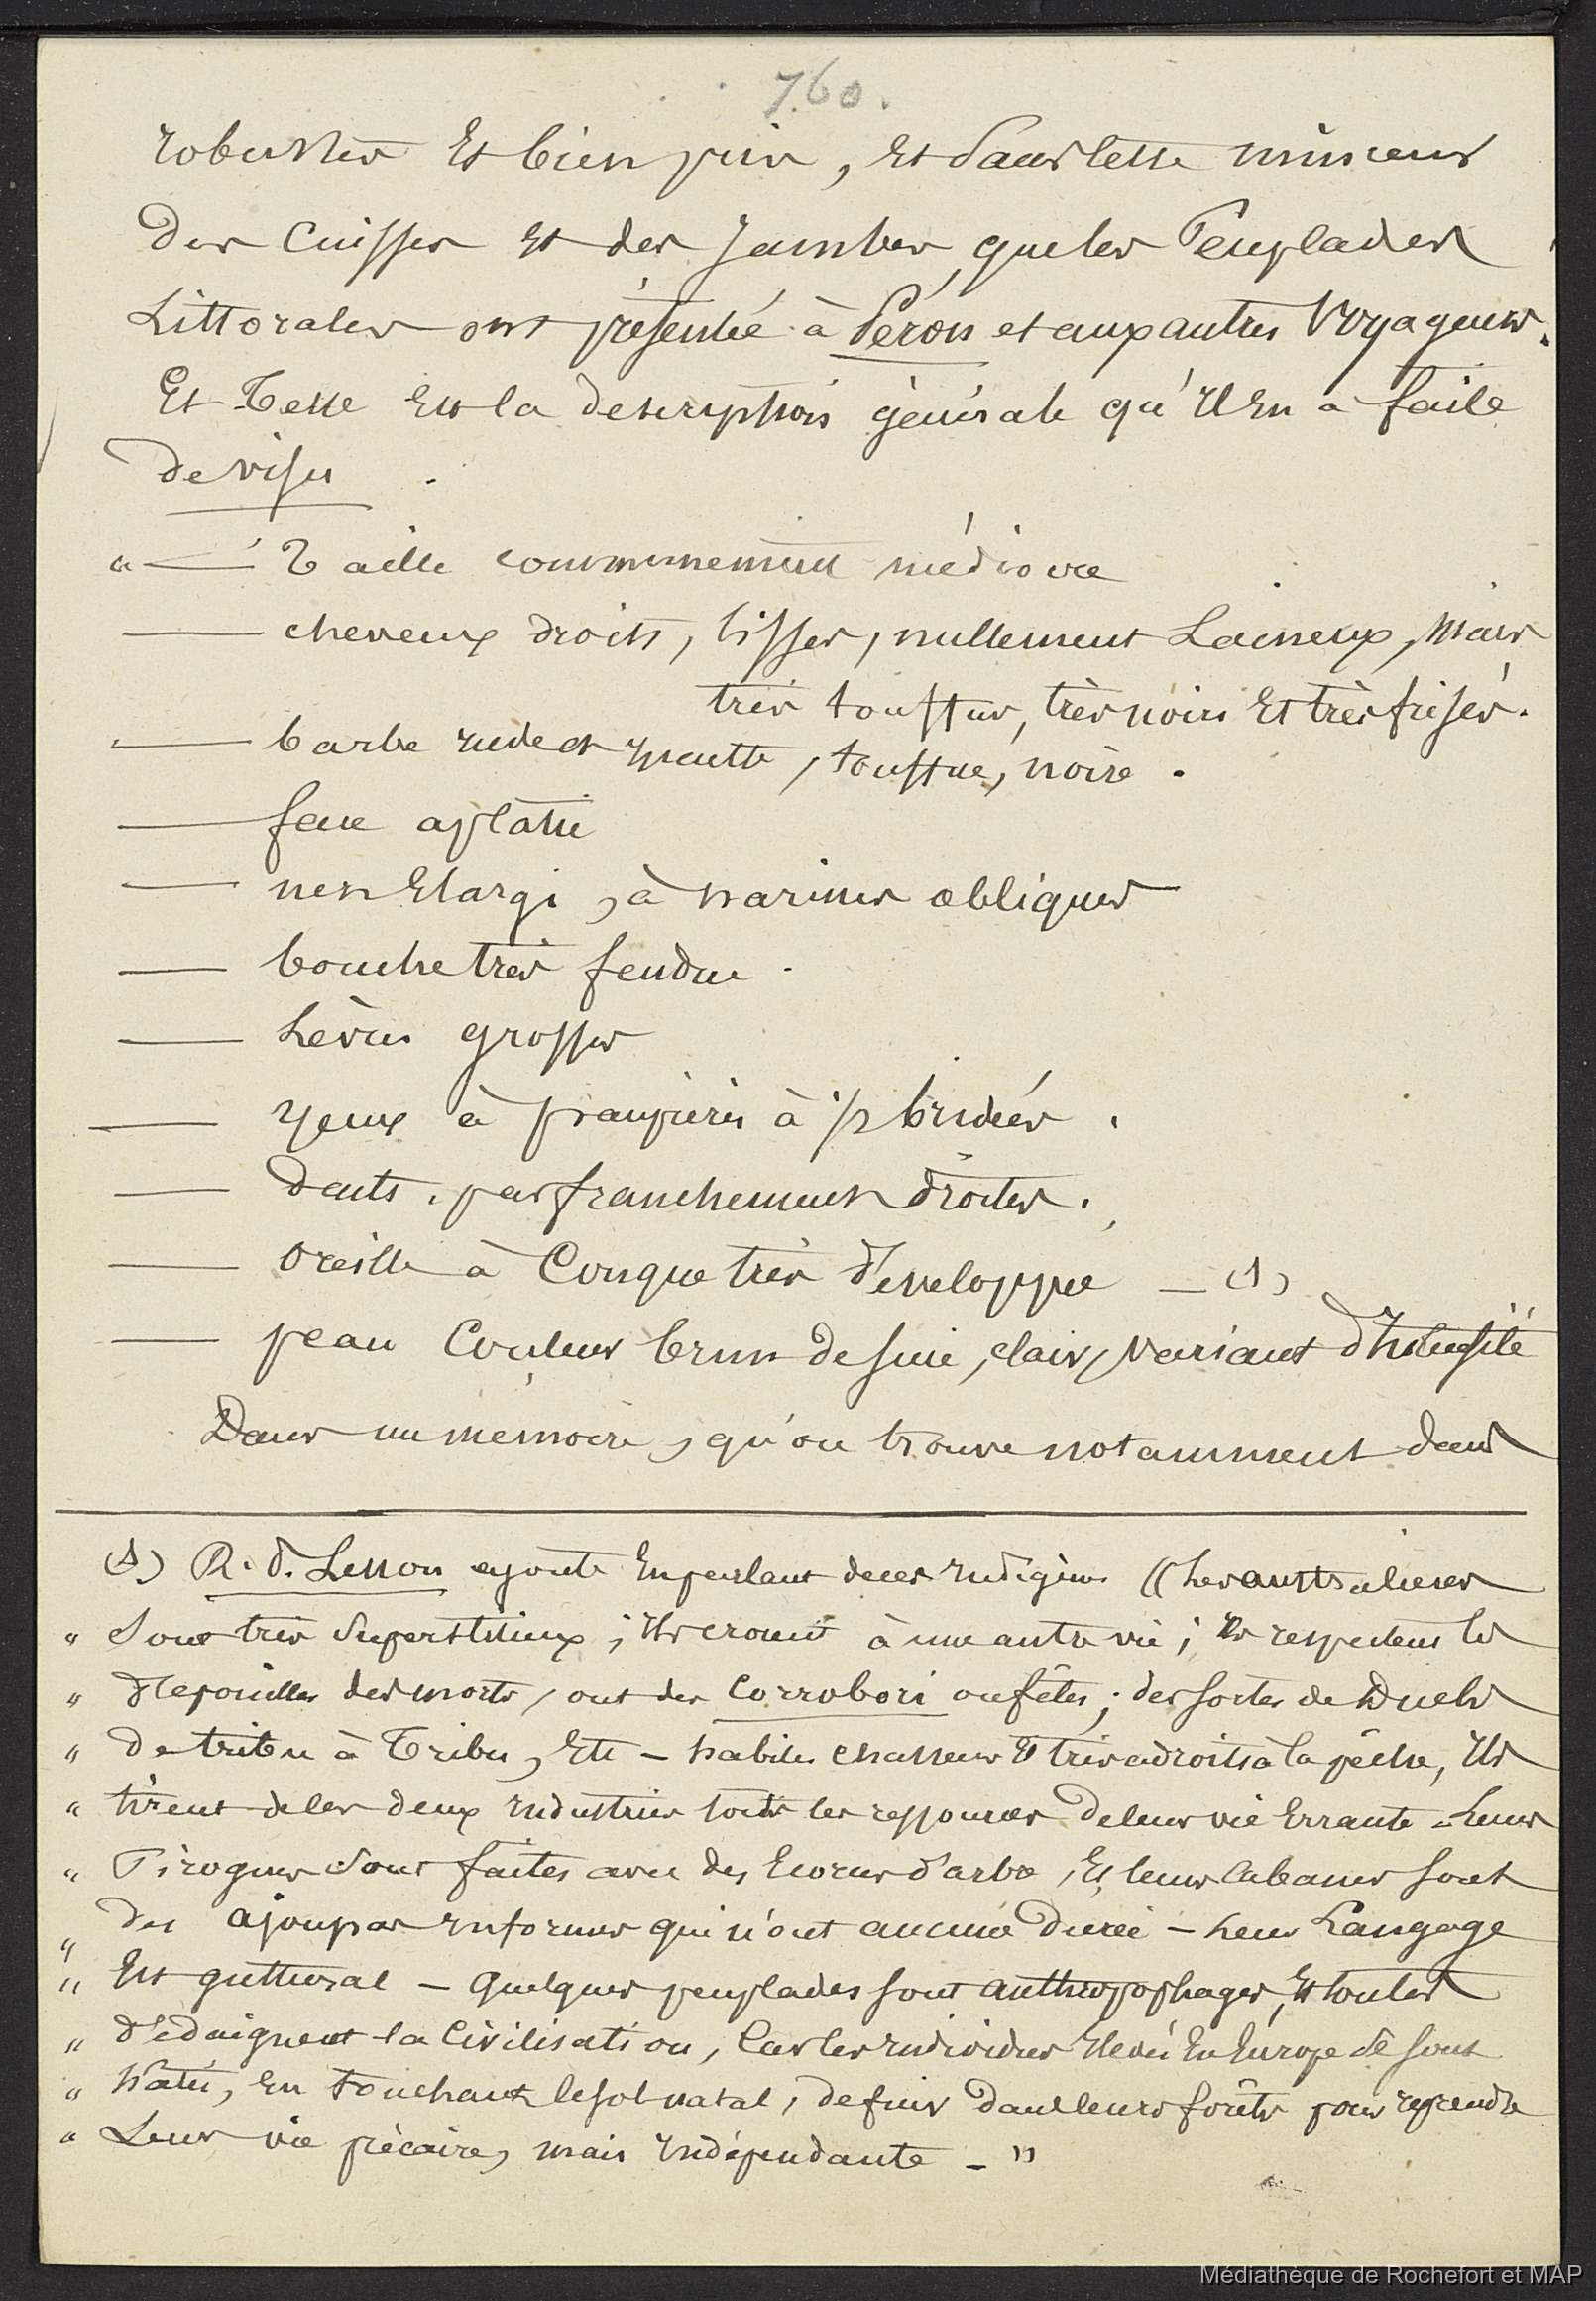 760.
robustes Et bien pris, Et Sans cette minceur
Des Cuisses Et des Jambes, que les Peuplades
Littorales ont présentée à Péron et aux autres Voyageurs.
Et Telle Est la description générale qu'Il En a faite
de visu.
" — Taille communement médiocre
— cheveux droits, lisses, nullement Laineux, Mais
très touffus, très noirs Et très frisés.
— barbe rude et épaisse, touffue, noire.
— face aplatie
— nez Elargi, à narines obliques
— bouche très fendue.
— Lèvres grosses
— yeux à paupières à 1/2 bridées.
— Dents. pas franchement droites.
— Oreille à Conque très développée — (1)
— peau Couleur brun de suie, clair, Variant d'Intensité
Dans un mémoire, qu'on trouve notamment dans
(1) R. P. Lesson ajoute En parlant de ces Indigènes « Les australiens
" Sont très Superstitieux ; Ils croient à une autre vie ; Ils respectent les
" dépouilles des morts, ont des Corrobori ou fêtes ; des sortes de Duels
" De tribu à Tribu, Etc — habiles chasseurs Et très adroits à la pêche, Ils
" tirent de ces deux Industries toutes les ressources de leur vie Errante. Leurs
" Pirogues Sont faites avec des Ecorces d'arbre, Et leurs Cabanes sont
" Des ajoupas informes qui n'ont aucune Durée — Leur Langage
" Est guttural — Quelques peuplades sont anthropophages, Et toutes
" Dédaignent la Civilisation, Car les individus Elevés En Europe se sont
" hâtés, En touchant le sol natal, de fuir dans leurs forêts pour reprendre
" Leur vie précaire, mais Indépendante — »
Médiathèque de Rochefort et MAP